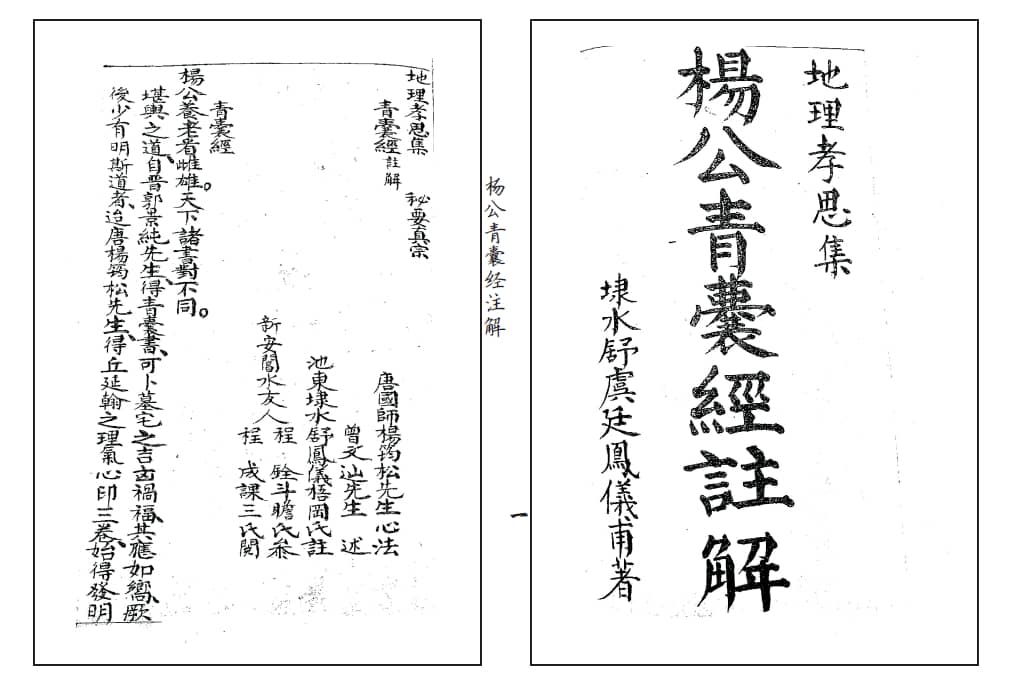 地理孝思集
楊公青囊經註解
埭水舒虞廷鳳儀甫著
杨公青囊经注解
一
地理孝思集 秘要真宗
青囊經註解
唐國師楊筠松先生心法
曾文辿先生 述
池東埭水舒鳳儀梧岡氏註
新安閶水友人
程 銓斗瞻氏叅
程 成課三氏閱
青囊經
楊公養老看雌雄。天下諸書對不同。
堪輿之道、自晋郭景純先生、得青囊書、可卜墓宅之吉凶禍福、其應如嚮、厥
後少有明斯道者、迨唐楊筠松先生、得丘延翰之理氣心印三卷、始得發明